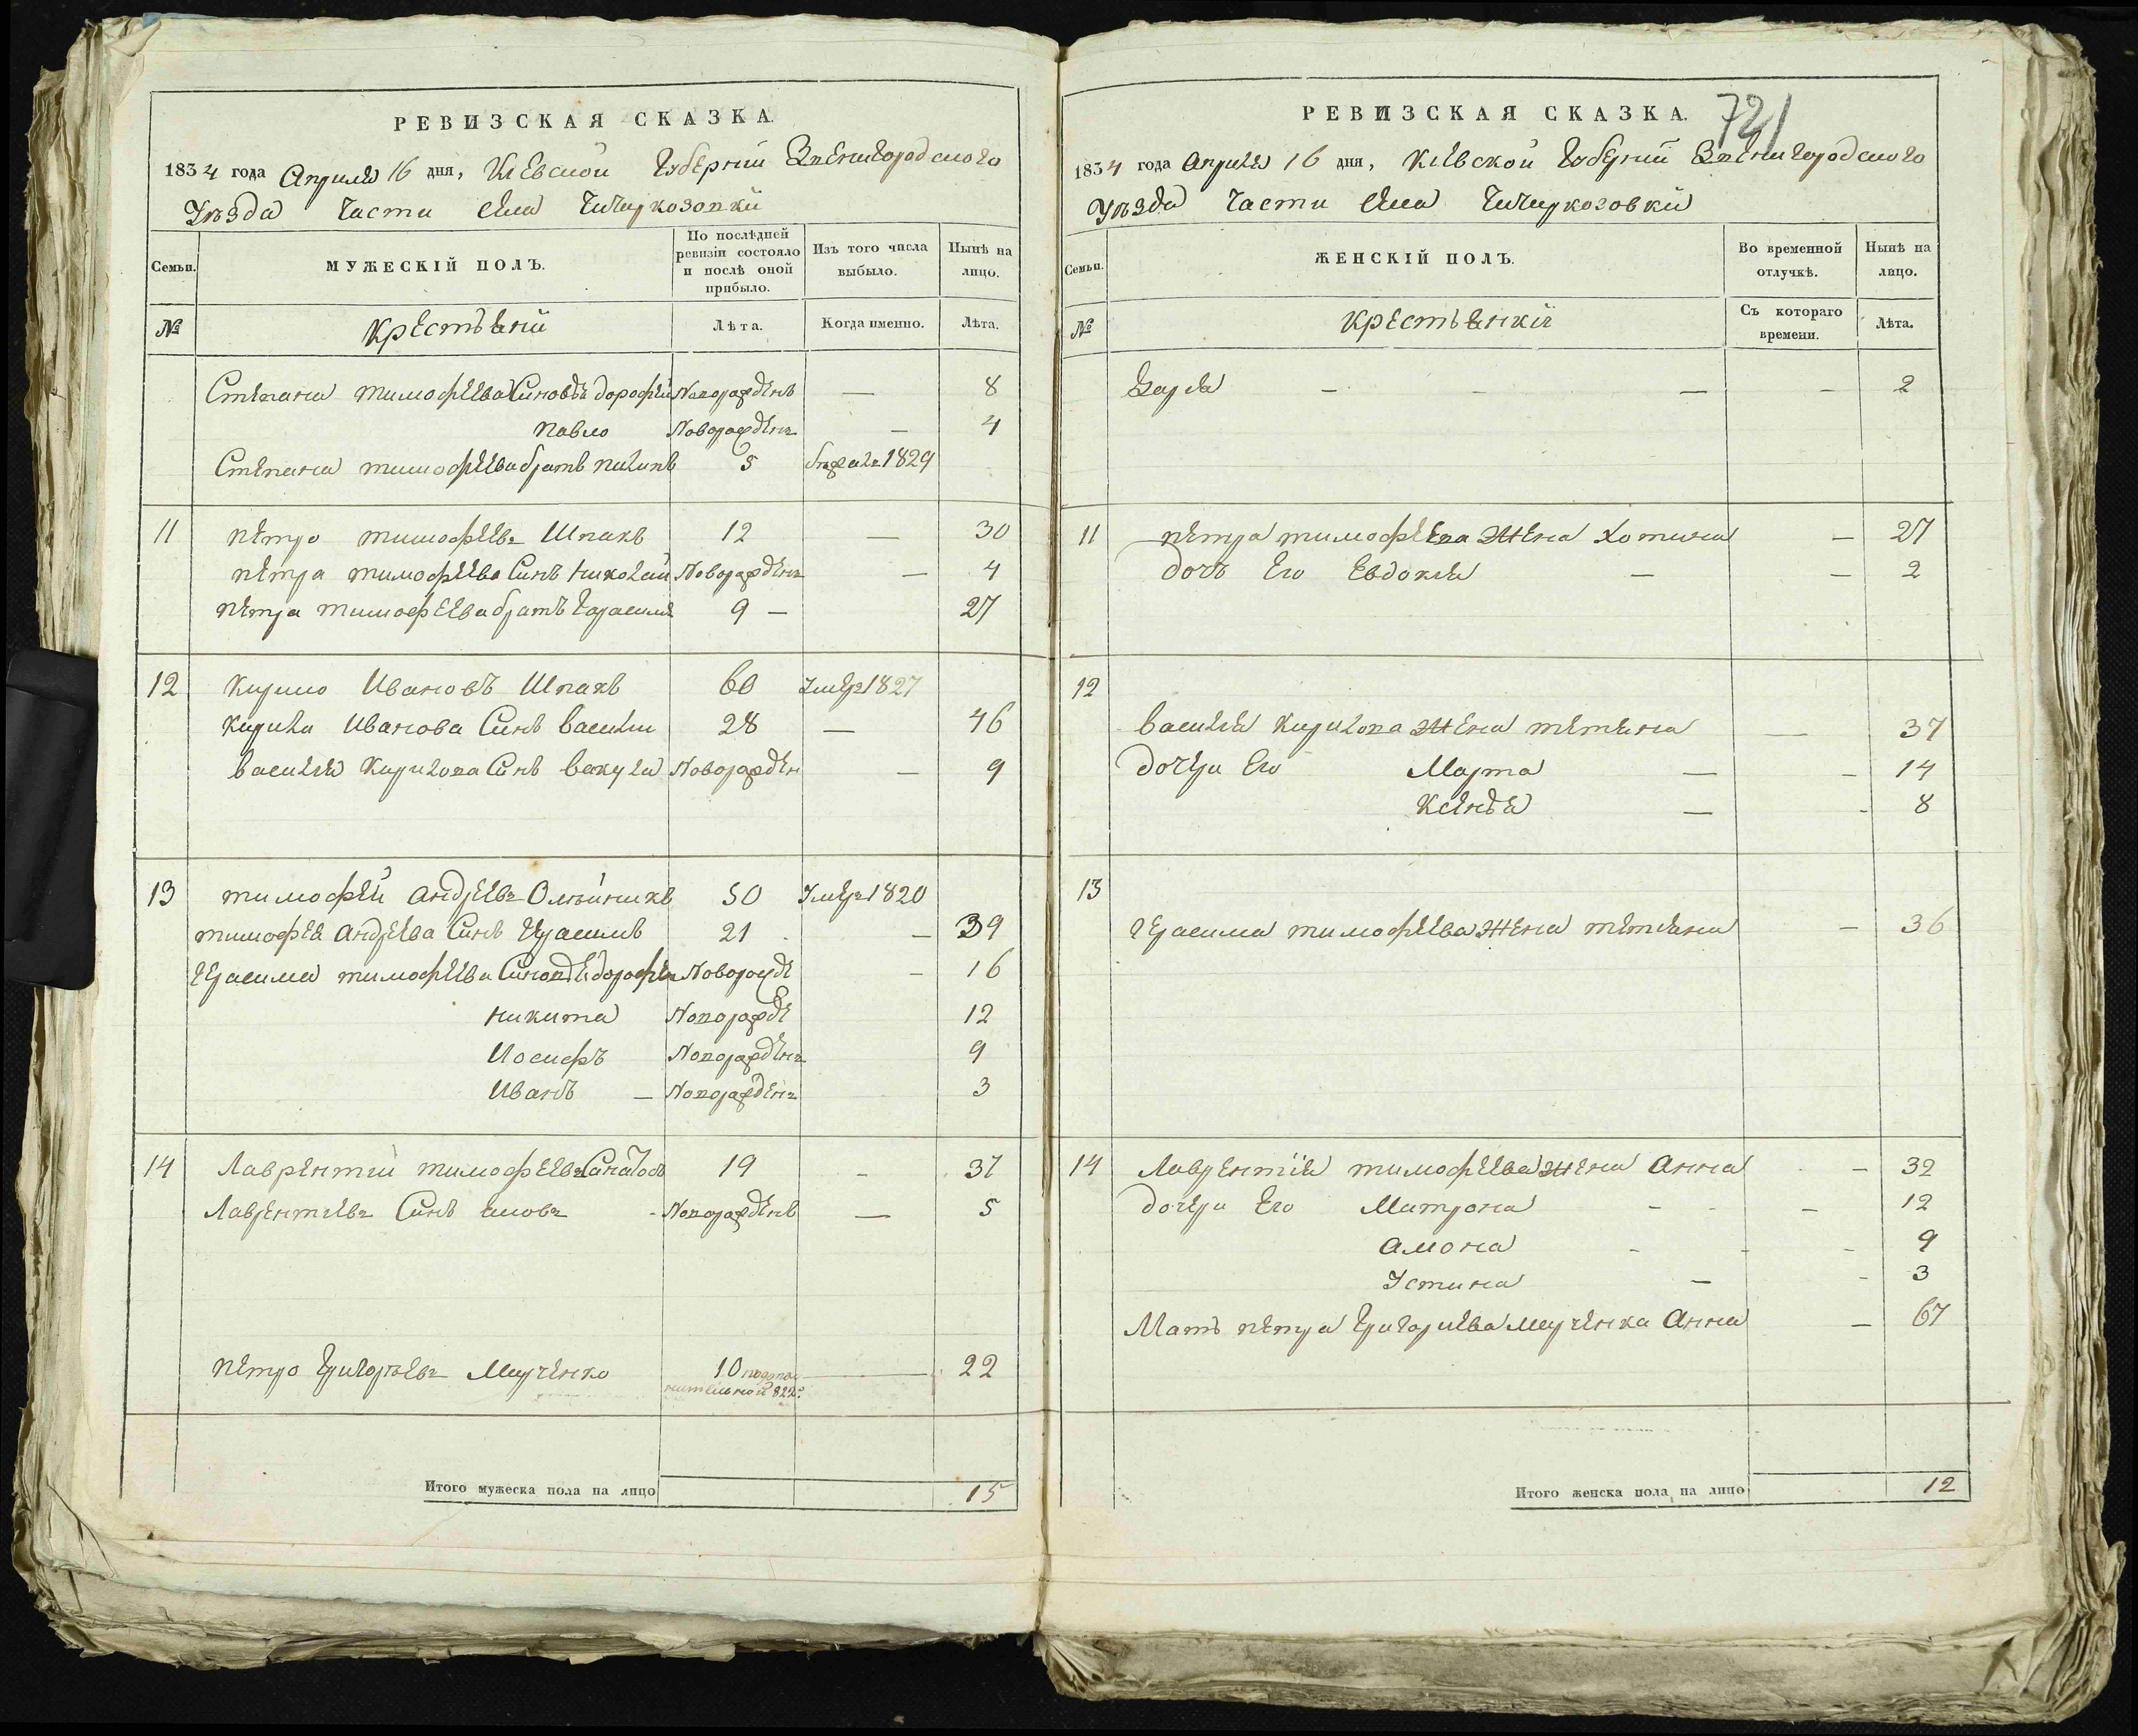 РЕВИЗСКАЯ СКАЗКА.
1834 года Апреля 16 дня, Кіевской Губерніи Звенигородского
Уѣзда Части села Чичиркозовки
Семьи.
МУЖЕСКІЙ ПОЛЪ.
По послѣдней ревизіи состояло и послѣ оной прибыло.
Изъ того числа выбыло.
Нынѣ на лицо.
№
Крестьяни
Лѣта.
Когда именно.
Лѣта.
Степана тимофеева Синовья дорофей Новорожденъ — 8
павло Новорожденъ — 4
Степана тимофеева братъ пилипъ 5 бежалъ 1829
11 петро тимофеевъ Шпакъ 12 — 30
петра тимофеева Синъ николай Новорожденъ — 4
петра тимофеева братъ Герасимъ 9 — 27
12 Кирило Ивановъ Шпакъ 60 Умеръ 1827
Кирила Иванова Синъ василій 28 — 46
василія Кирилова Синъ вакула Новорожден — 9
13 тимофей андреевъ Олейникъ 50 Умеръ 1820
тимофея андреева Синъ Герасимъ 21 — 39
Герасима тимофеева Синовья дорофей Новорожде — 16
никита Новорожде 12
Иосифъ Новорожденъ 9
Иванъ — Новорожденъ 3
14 Лаврентій тимофеевъ 19 — 37
Лаврентіевъ Синъ Новорожденъ — 5
петро Григорьевъ 10 822 — 22
Итого мужеска пола на лицо 15
РЕВИЗСКАЯ СКАЗКА.
721
1834 года Апреля 16 дня, Кіевской Губерніи Звенигородского
Уѣзда Части села Чичиркозовки
Семьи.
ЖЕНСКІЙ ПОЛЪ.
Во временной отлучкѣ.
Нынѣ на лицо.
№
Крестьянкіи
Съ котораго времени.
Лѣта.
— — — — 2
11 петра тимофеева жена хотина — 27
дочъ Его Евдокія — — 2
12
василія Кирилова жена тетяна — 37
дочери Его Марта — — 14
Ксеня — - 8
13
Герасима тимофеева жена тетяна — 36
14 Лаврентія тимофеева жена Анна — 32
дочери Его Матрона - - — 12
Амона - - - 9
Устина — - 3
Мать петра Григориева Анна — 67
Итого женска пола на лицо 12